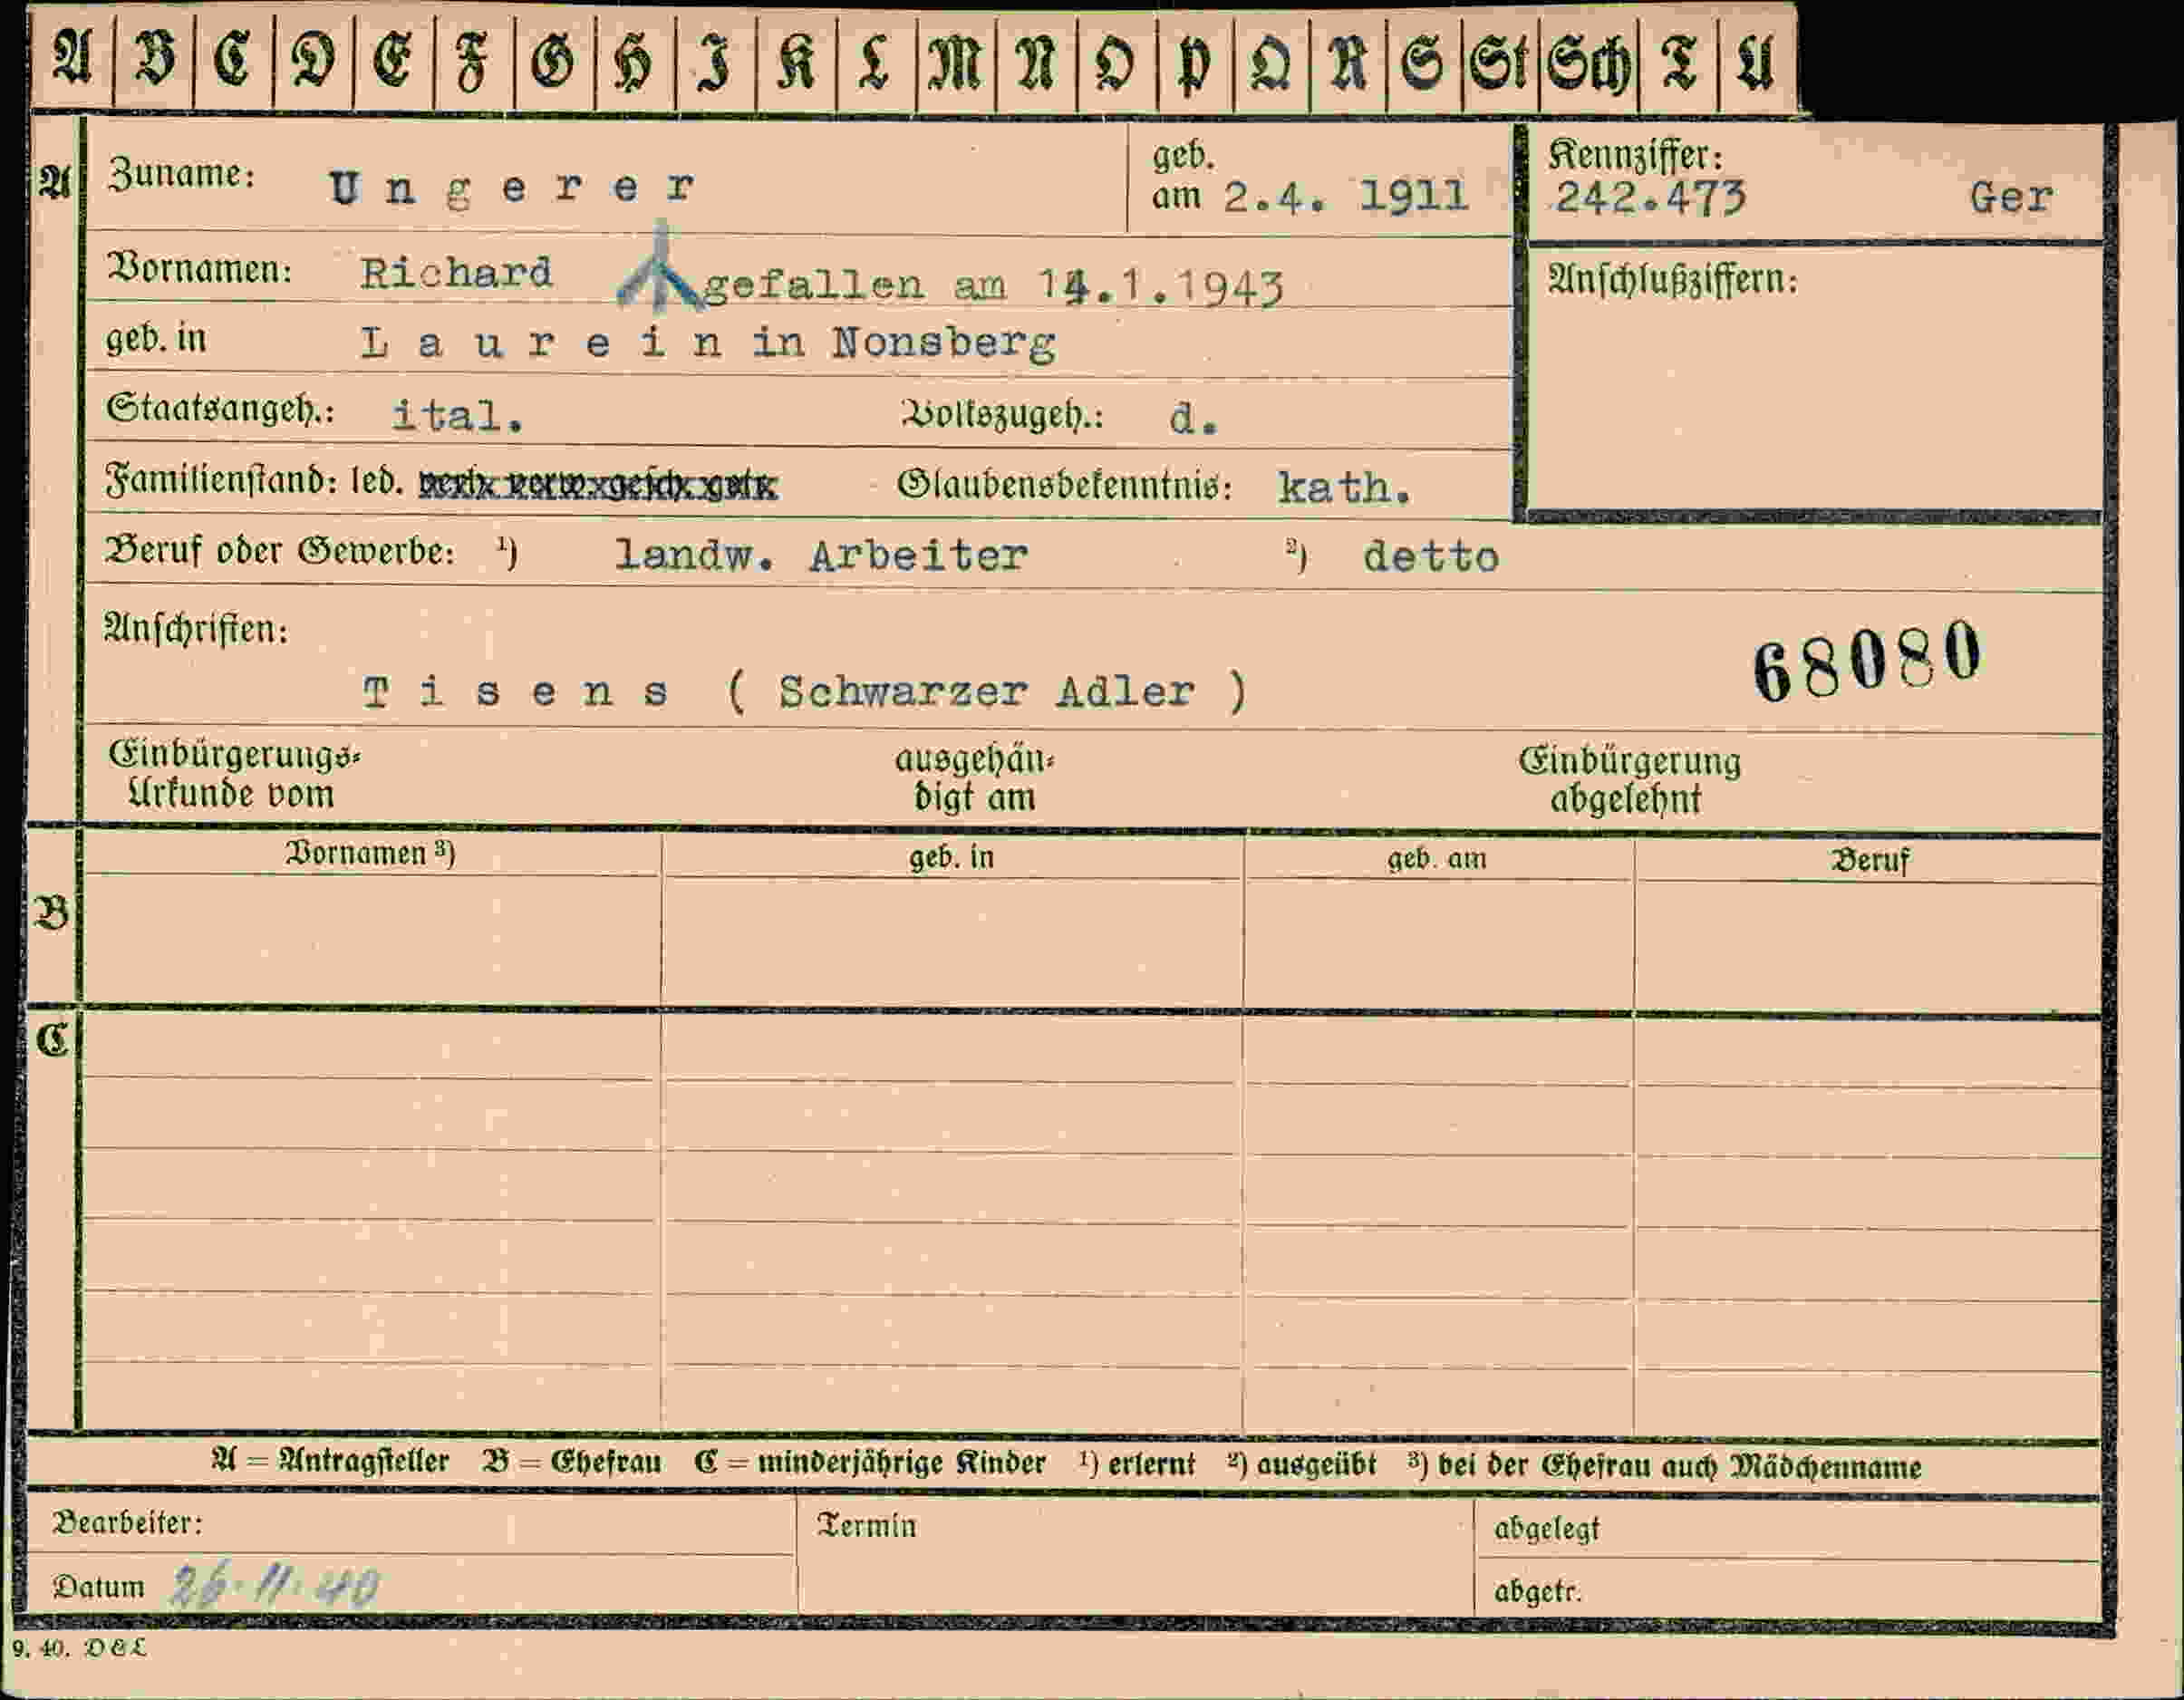 A B C D E F G H I K L M N O P Q R S St Sch T U
A Zuname: Ungerer geb. am 2.4. 1911 Kennziffer: 242.473 Ger
Vornamen: Richard gefallen am 14.1.1943 Anschlußziffern:
geb. in Laurein in Nonsberg
Staatsangeh.: ital. Volkszugeh.: d.
Familienstand: led. verh. verw. gesch. getr. Glaubensbekenntnis: kath.
Beruf oder Gewerbe: ¹) landw. Arbeiter ²) detto
Anschriften:
68080
Tisens ( Schwarzer Adler )
Einbürgerungs- ausgehän- Einbürgerung
Urkunde vom digt am abgelehnt
Vornamen ³) geb. in geb. am Beruf
B
C
A = Antragsteller B = Ehefrau C = minderjährige Kinder ¹) erlernt ²) ausgeübt ³) bei der Ehefrau auch Mädchenname
Bearbeiter: Termin abgelegt
Datum 26.11.40 abgetr.
9. 40. DEL